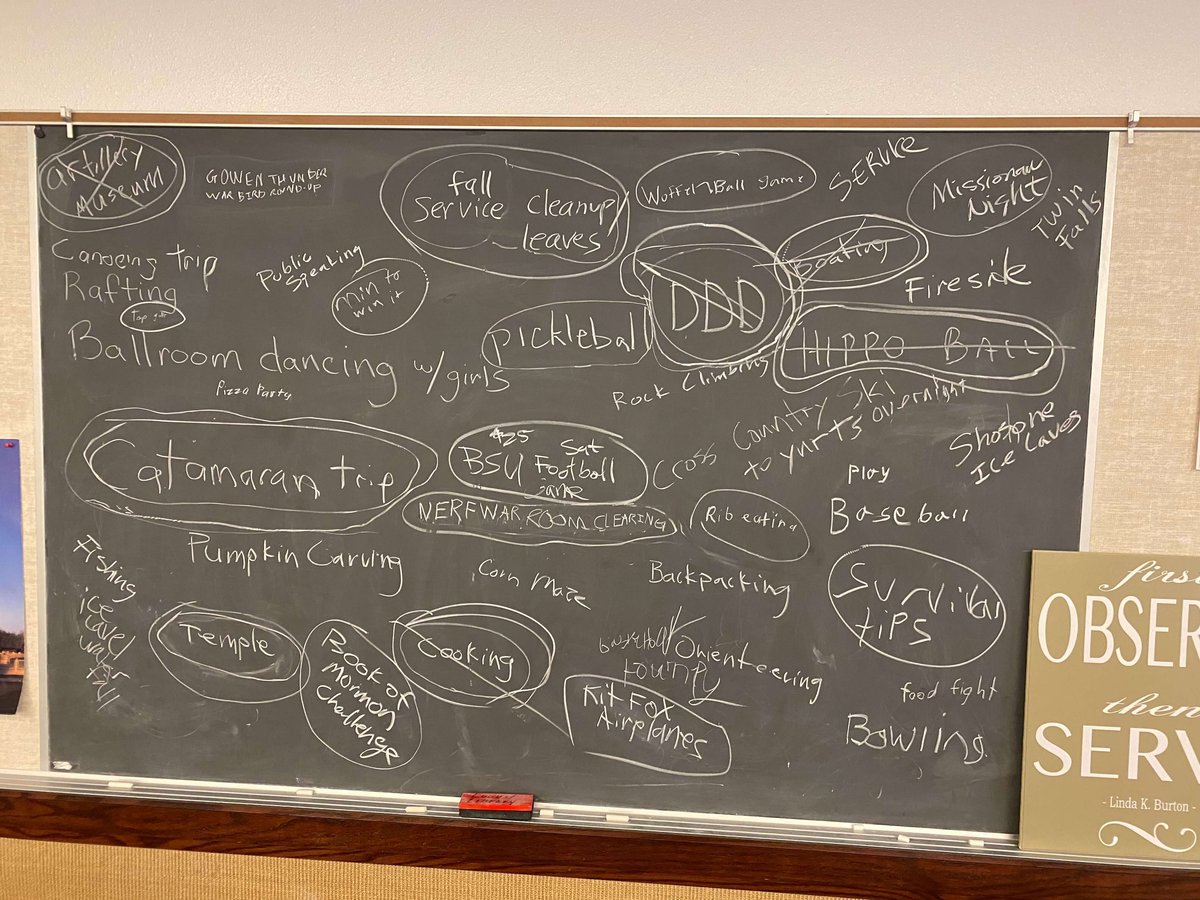 artillery
Museum
GOWEN THUNDER
WAR BIRD ROUND-UP
fall
Service cleanup
leaves
Ball game
SERVICE
Missionary
Night
Twin
Falls
Canoeing trip
Rafting
Top golf
Public
Speaking
Min to
win it
DDD
Boating
Fireside
pickleball
HIPPO BALL
Ballroom dancing w/girls
Pizza Party
Rock Climbing
Cross Country Ski
to yurts overnight
Shoshone
Ice Caves
Catamaran trip
Sat
BSU Football
game
NERF WAR ROOM CLEARING
Rib eating
Play
Baseball
Pumpkin Carving
Corn Maze
Backpacking
Survival
tips
Fishing
ice
cavel
water
fall
Temple
Book of
mormon
challenge
Cooking
Orienteering
Kit Fox
Airplanes
food fight
Bowling
first
OBSER
then
SERV
- Linda K. Burton -